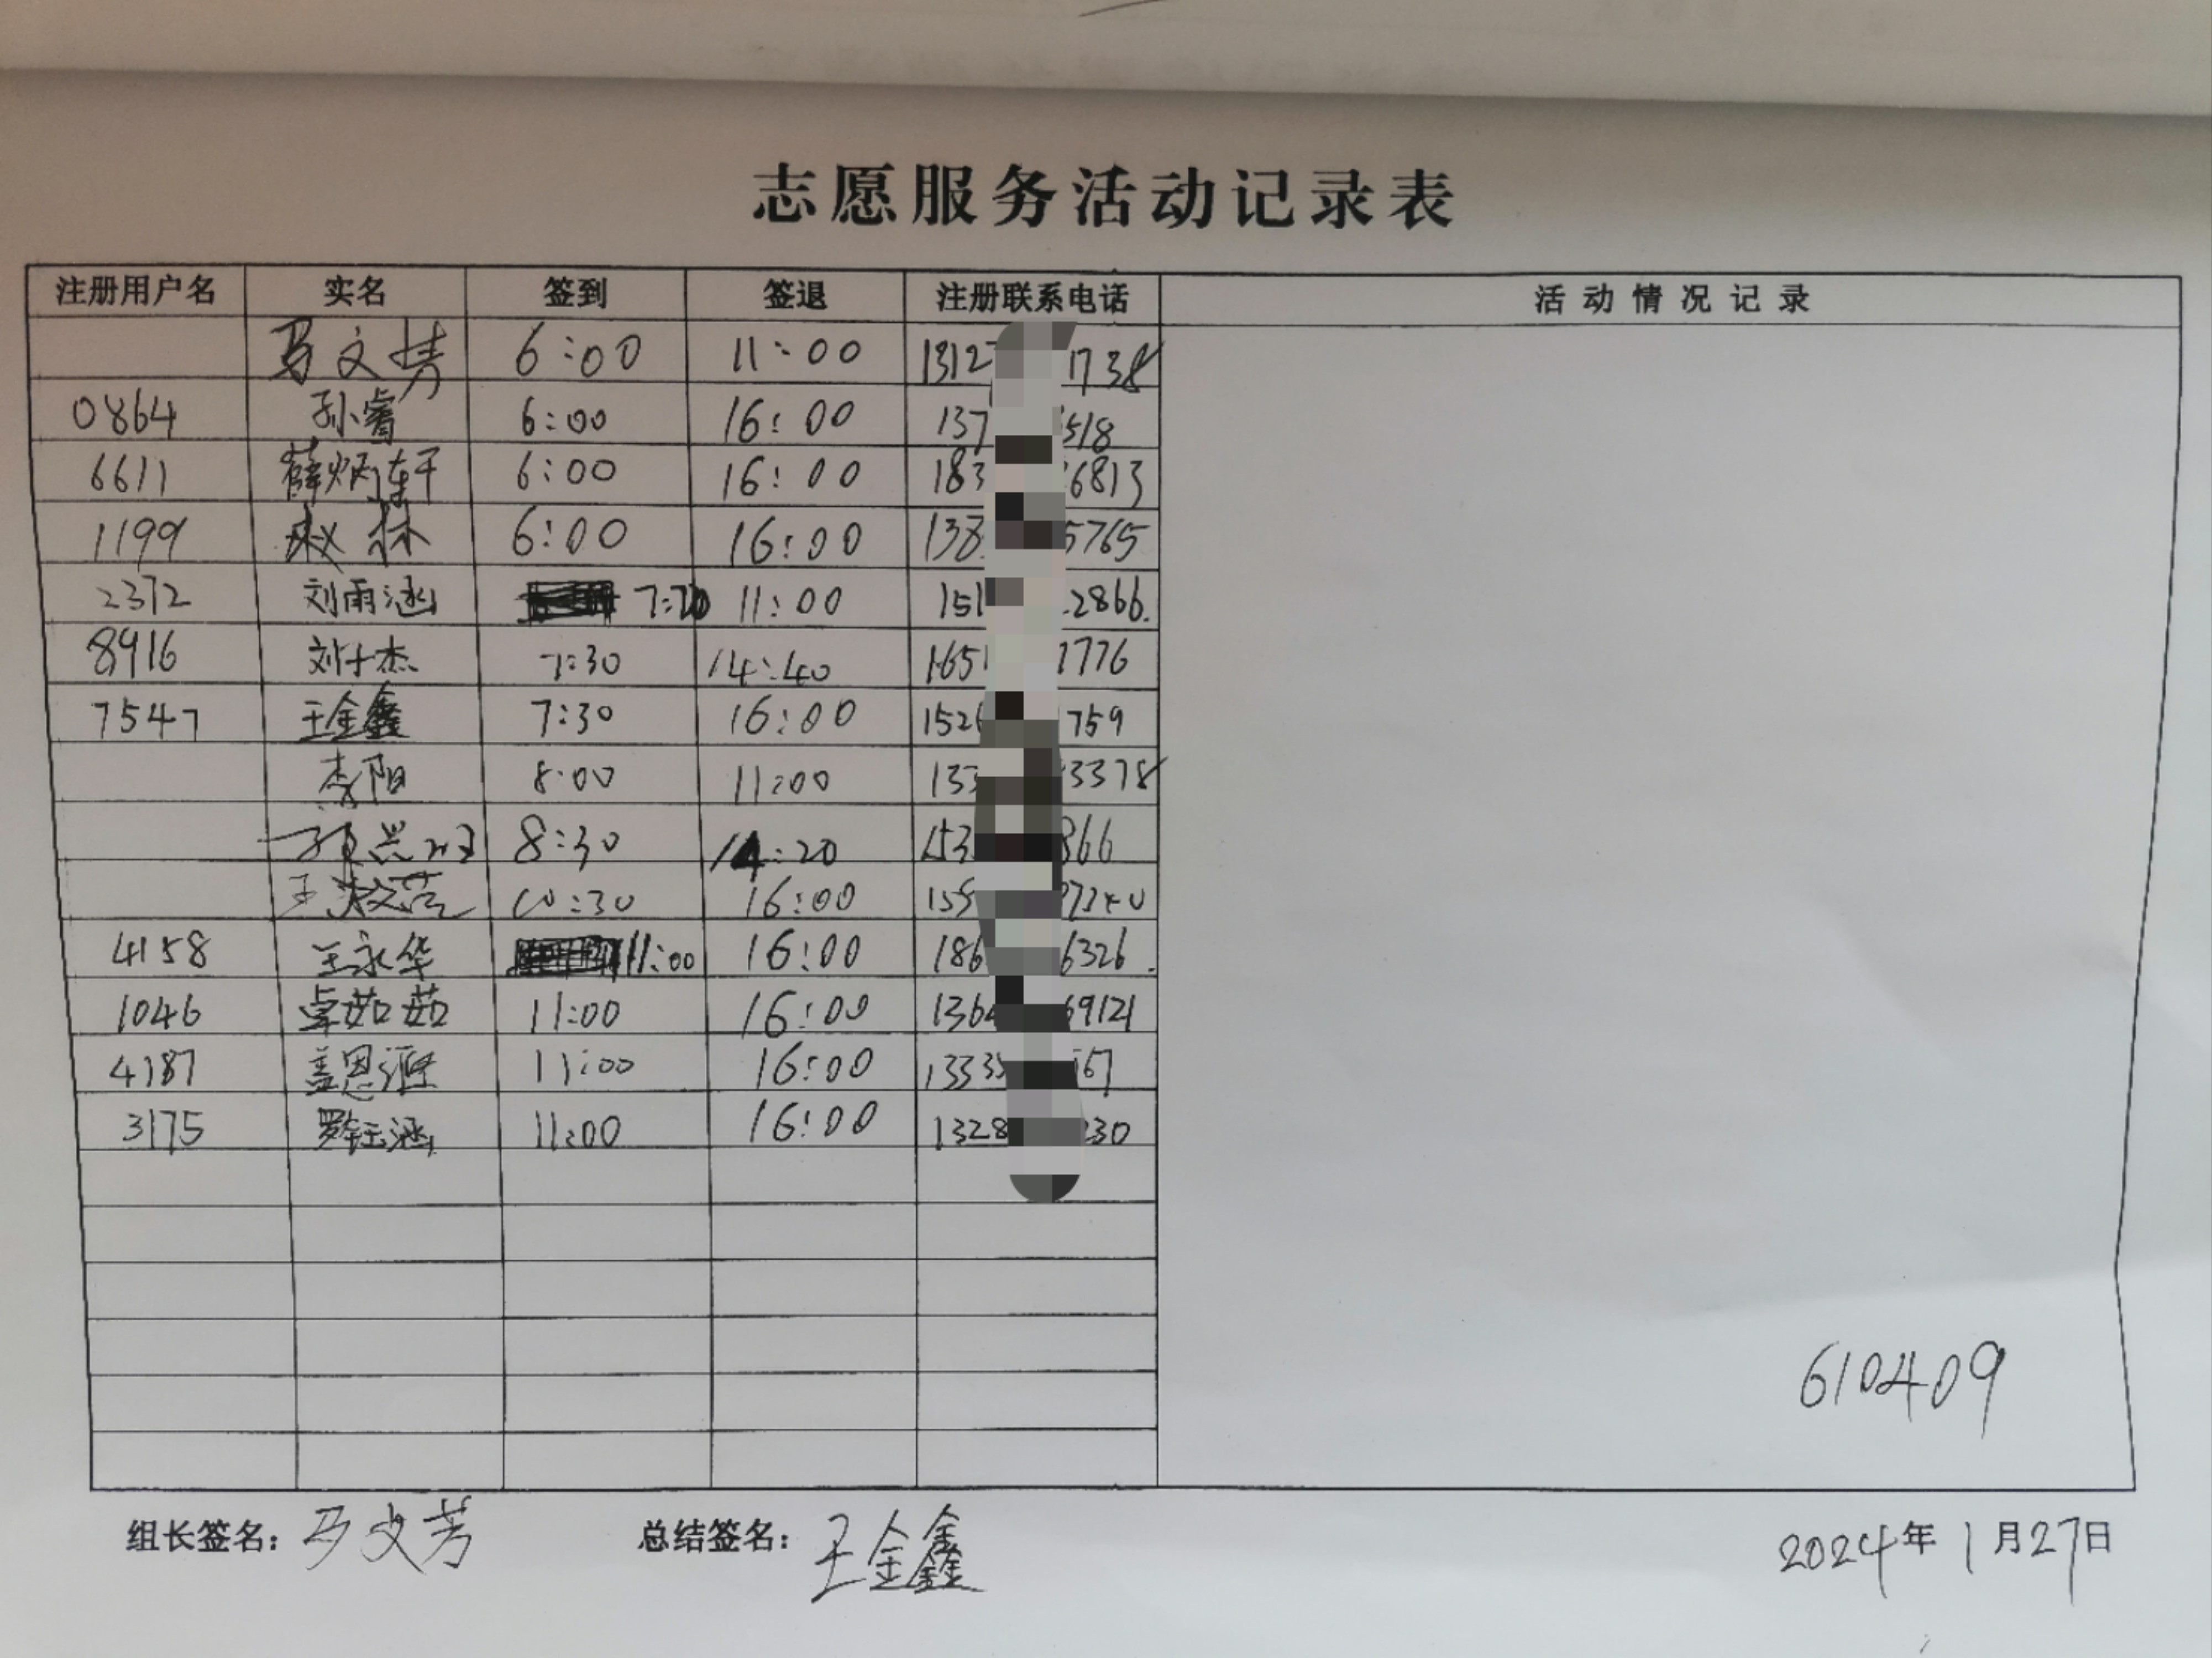 志愿服务活动记录表
注册用户名 实名 签到 签退 注册联系电话 活动情况记录
马文芳 6:00 11:00 1312 1738
0864 孙睿 6:00 16:00 137 518
6611 薛炳轩 6:00 16:00 183 6813
1199 赵林 6:00 16:00 138 5765
2372 刘雨涵 7:20 11:00 151 2866.
8916 刘于杰 7:30 14:40 1651 1776
7547 王金鑫 7:30 16:00 152 759
李阳 8:00 11:00 133 3378
8:30 14:20 153 866
10:30 16:00 155 7340
4158 王永华 11:00 16:00 186 6326.
1046 卓茹茹 11:00 16:00 136 69121
4187 盖恩涯 11:00 16:00 1333 67
3175 罗钰涵 11:00 16:00 1328 230
610409
组长签名：马文芳 总结签名：王金鑫 2024年1月27日